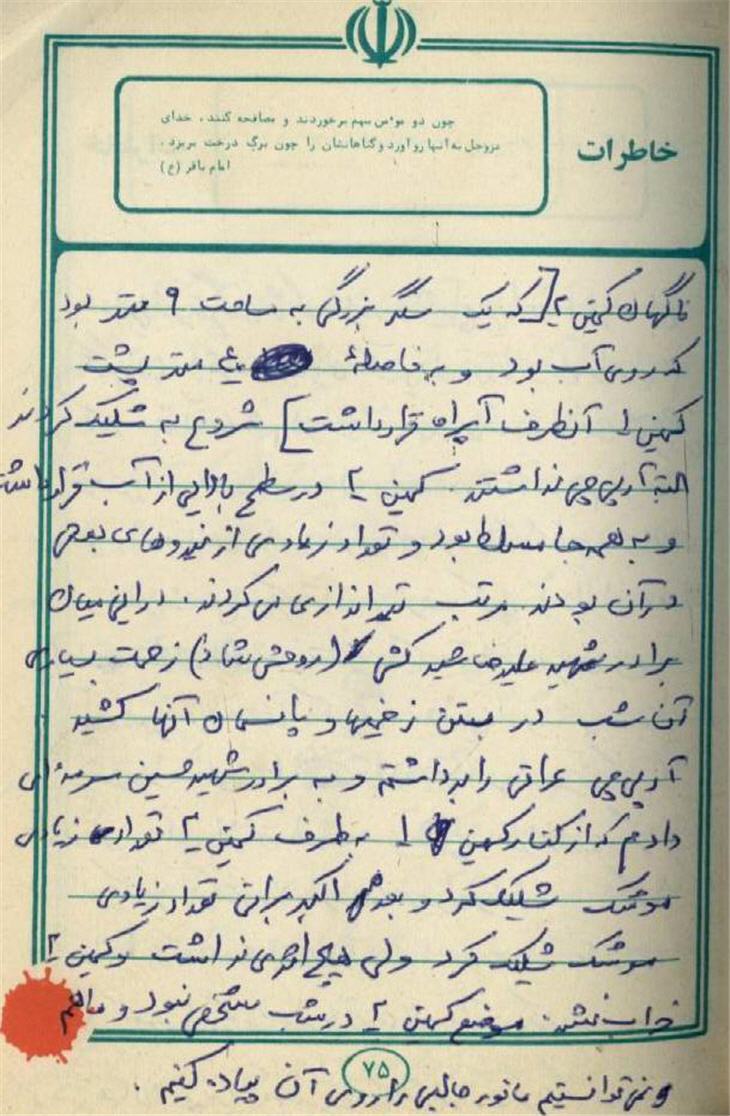 خاطرات
چون دو مؤمن بهم برخوردند و مصافحه کنند، خدای
عزوجل به آنها رو آورد و گناهانشان را چون برگ درخت بریزد.
امام باقر (ع)
ناگهان کمین ۲ [که یک سنگر بزرگی به مساحت ۹ متر بود
که روی آب بود و به فاصلهٔ متر پشت
کمین ۱ آنطرف آبراه قرار داشت] شروع به شلیک کردند
البته آرپی‌جی نداشتند. کمین ۲ در سطح بالایی از آب قرار داشت
و به همه جا مسلط بود و تعداد زیادی از نیروهای بعثی
در آن بودند. مرتب تیراندازی می‌کردند. در این میان
برادر شهید علیرضا (روحش شاد) زحمت بسیاری
آن شب در بستن زخمیها و پانسمان آنها کشید.
آرپی‌جی عراقی را برداشتم و به برادر شهید حسین
دادم که از کنار کمین ۱ به طرف کمین ۲ تعدادی زیادی
موشک شلیک کرد و بعد هم اکبر تعداد زیادی
موشک شلیک کرد ولی هیچ اثری نداشت و کمین ۲
خراب نشد. موضع کمین ۲ در شب مشخص نبود و ما هم
نمی‌توانستیم مانور جالبی را روی آن پیاده کنیم.
۷۵